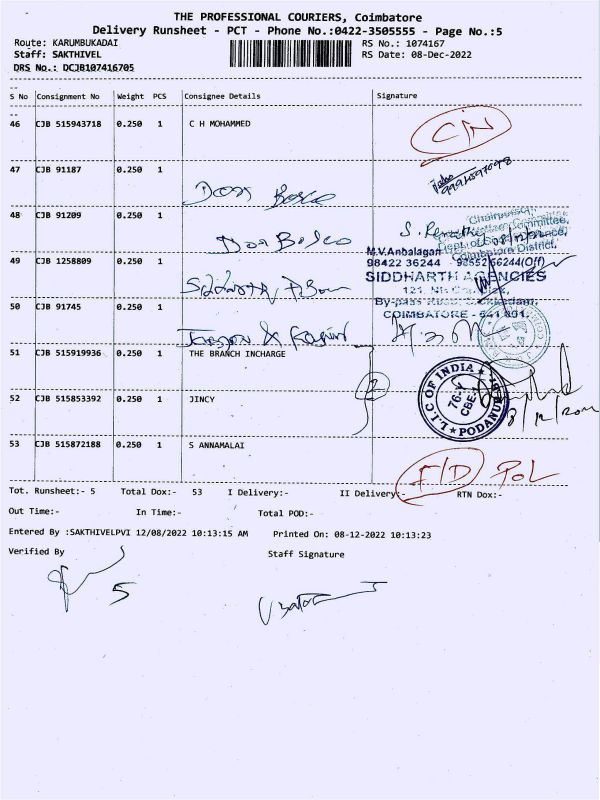 THE PROFESSIONAL COURIERS, Coimbatore
Delivery Runsheet - PCT - Phone No.:0422-3505555 - Page No.:5
Route: KARUMBUKADAI RS No.: 1074167
Staff: SAKTHIVEL RS Date: 08-Dec-2022
DRS No.: DCJB107416705
S No Consignment No Weight PCS Consignee Details Signature
46 CJB 515943718 0.250 1 C H MOHAMMED
C/N
47 CJB 91187 0.250 1
Don Bosco
48 CJB 91209 0.250 1
Don Bosco
Chairperson,
Coimbatore District.
M.V.Anbalagan
49 CJB 1258809 0.250 1
98422 36244 - 98552 66244(Off)
SIDDHARTH AGENCIES
50 CJB 91745 0.250 1
COIMBATORE - 641 801.
51 CJB 515919936 0.250 1 THE BRANCH INCHARGE
2
L.I.C OF INDIA
76-
CBE
PODANUR
52 CJB 515853392 0.250 1 JINCY
53 CJB 515872188 0.250 1 S ANNAMALAI
F/D POL
Tot. Runsheet:- 5 Total Dox:- 53 I Delivery:- II Delivery:- RTN Dox:-
Out Time:- In Time:- Total POD:-
Entered By :SAKTHIVELPVI 12/08/2022 10:13:15 AM Printed On: 08-12-2022 10:13:23
Verified By Staff Signature
5